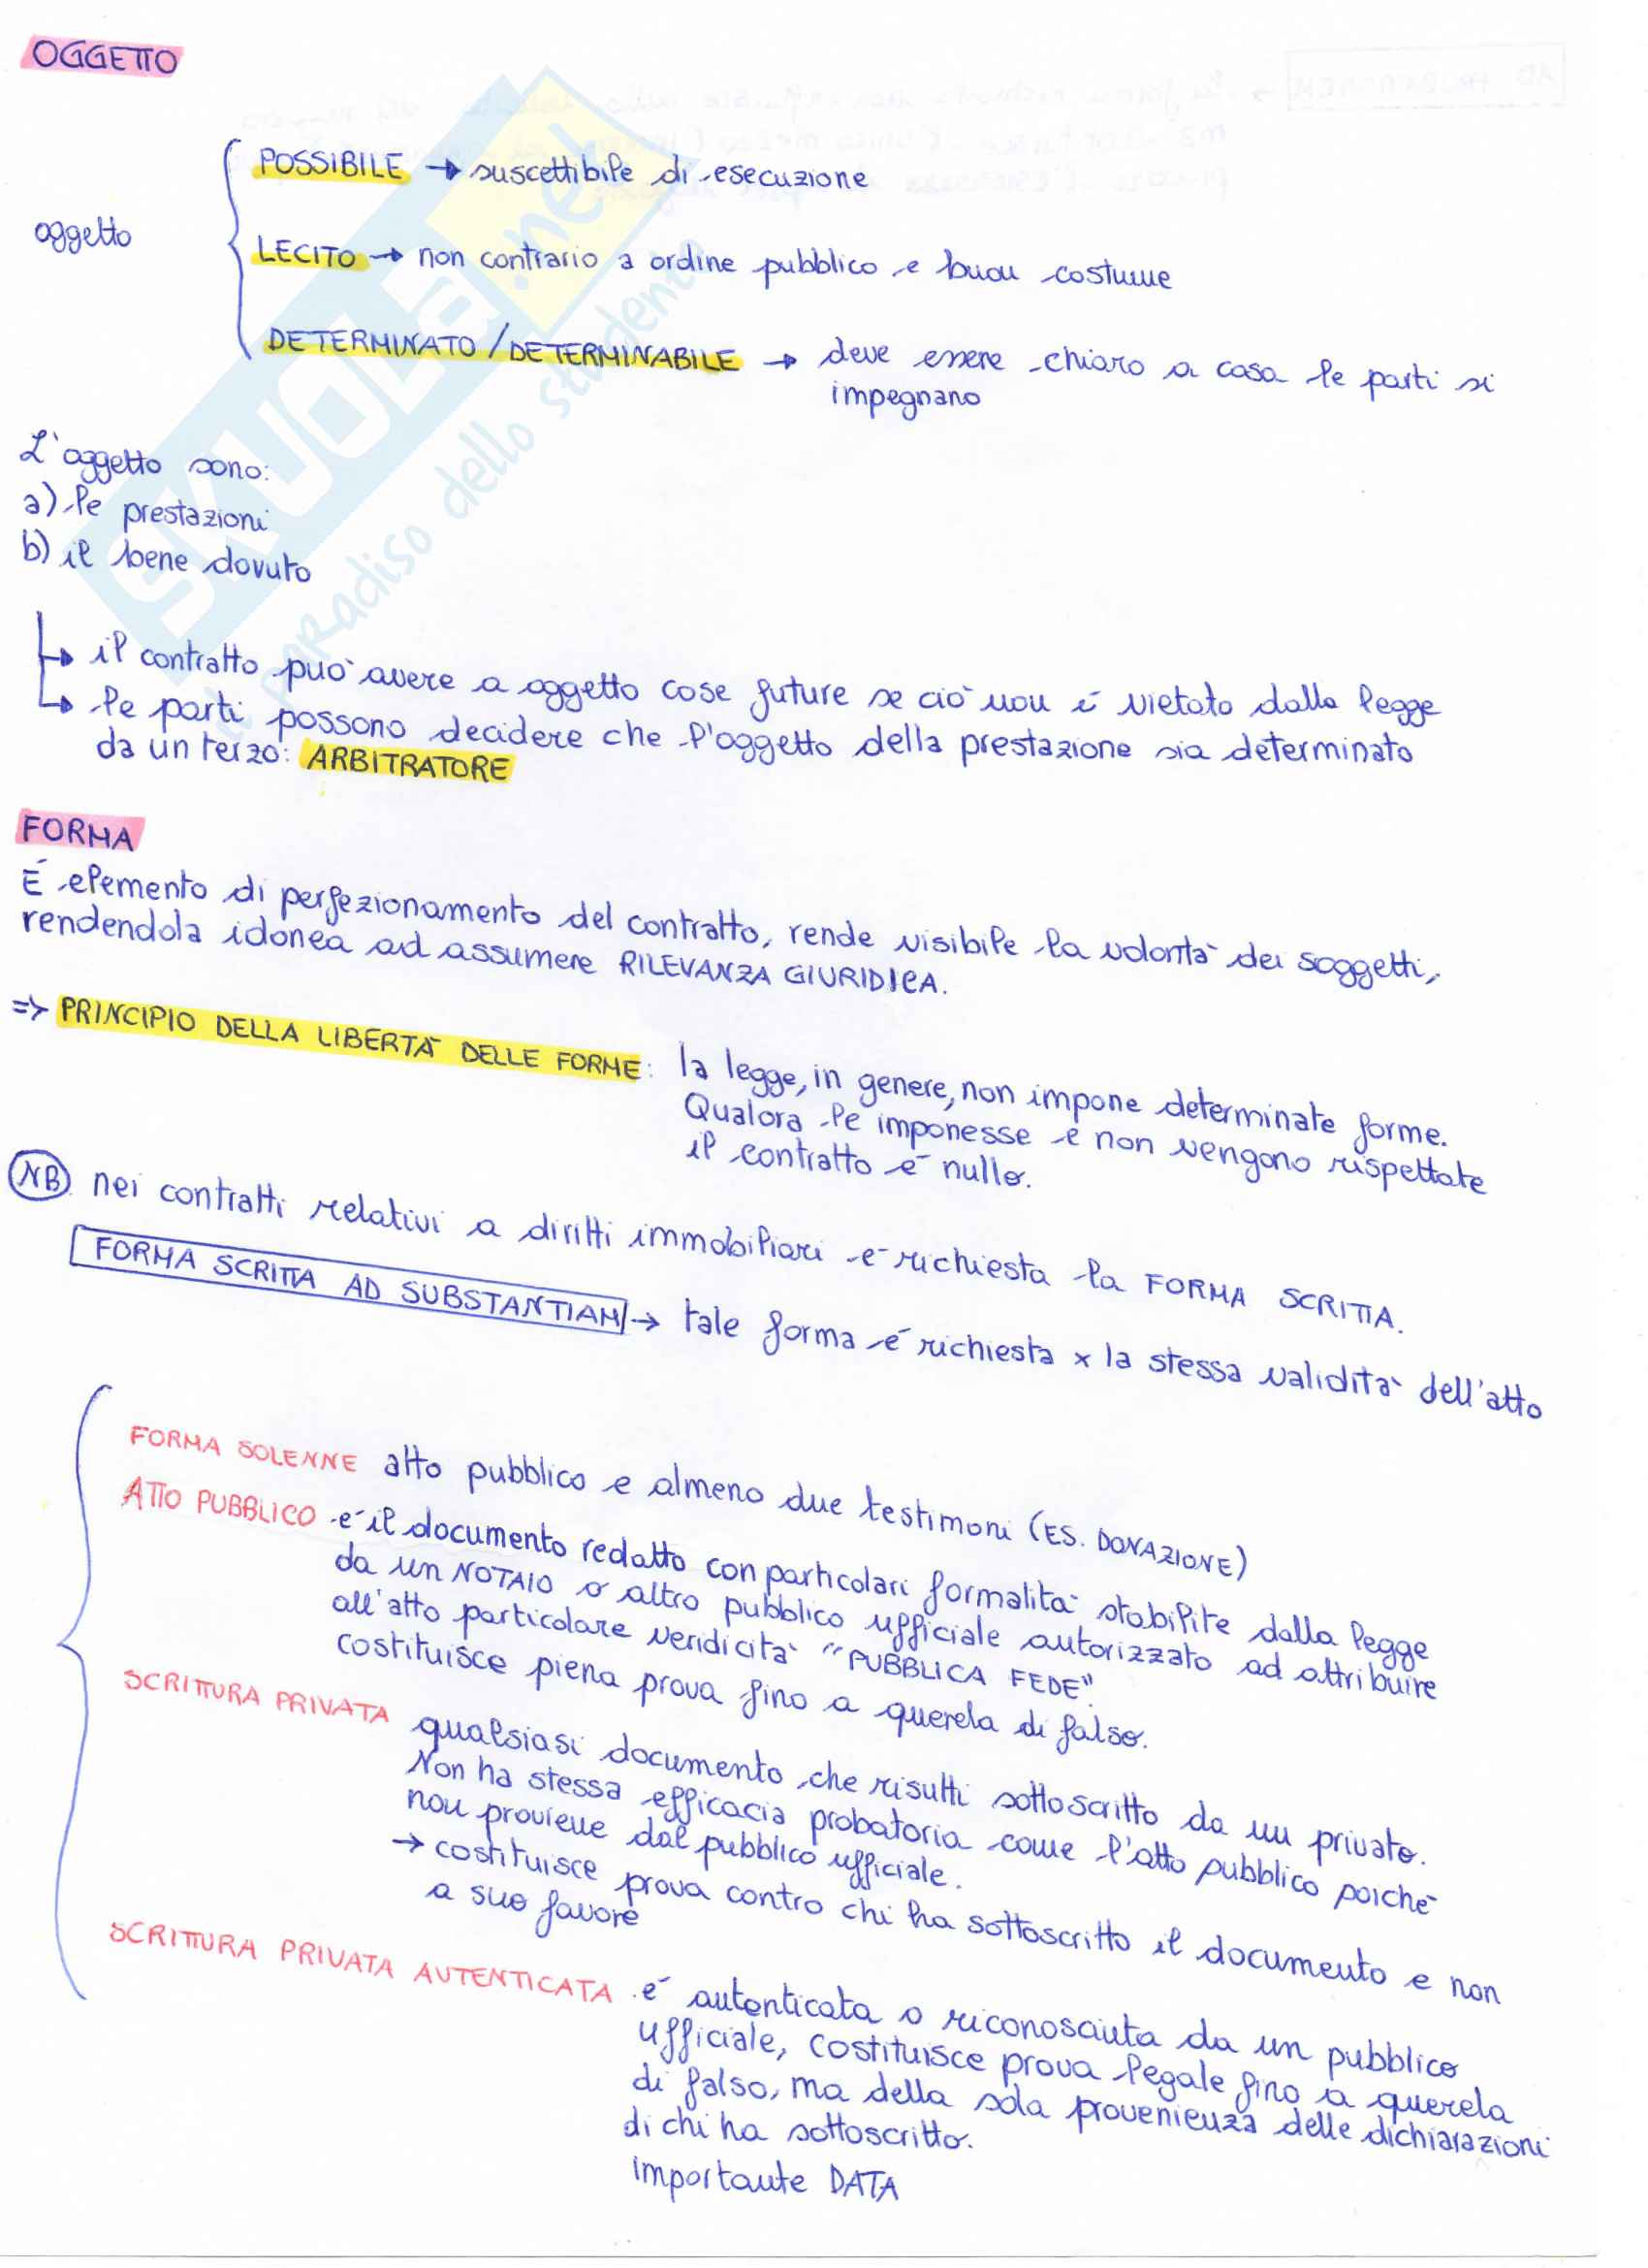 OGGETTO
POSSIBILE → suscettibile di esecuzione
oggetto
LECITO → non contrario a ordine pubblico e buon costume
DETERMINATO / DETERMINABILE → deve essere chiaro a cosa le parti si
impegnano
L'oggetto sono:
a) le prestazioni
b) il bene dovuto
→ il contratto può avere a oggetto cose future se ciò non è vietato dalla legge
→ le parti possono decidere che l'oggetto della prestazione sia determinato
da un terzo: ARBITRATORE
FORMA
É elemento di perfezionamento del contratto, rende visibile la volontà dei soggetti,
rendendola idonea ad assumere RILEVANZA GIURIDICA.
=> PRINCIPIO DELLA LIBERTÀ DELLE FORME: la legge, in genere, non impone determinate forme.
Qualora le imponesse e non vengono rispettate
il contratto é nullo.
NB nei contratti relativi a diritti immobiliari é richiesta la FORMA SCRITTA.
FORMA SCRITTA AD SUBSTANTIAM → tale forma é richiesta x la stessa validità dell'atto
FORMA SOLENNE atto pubblico e almeno due testimoni (ES. DONAZIONE)
ATTO PUBBLICO é il documento redatto con particolari formalità stabilite dalla legge
da un NOTAIO o altro pubblico ufficiale autorizzato ad attribuire
all'atto particolare veridicità "PUBBLICA FEDE".
costituisce piena prova fino a querela di falso.
SCRITTURA PRIVATA qualsiasi documento che risulti sottoscritto da un privato.
Non ha stessa efficacia probatoria come l'atto pubblico poiché
non proviene dal pubblico ufficiale.
→ costituisce prova contro chi ha sottoscritto il documento e non
a suo favore
SCRITTURA PRIVATA AUTENTICATA é autenticata o riconosciuta da un pubblico
ufficiale, costituisce prova legale fino a querela
di falso, ma della sola provenienza delle dichiarazioni
di chi ha sottoscritto.
importante DATA
SKUOLa.net
il paradiso dello studente